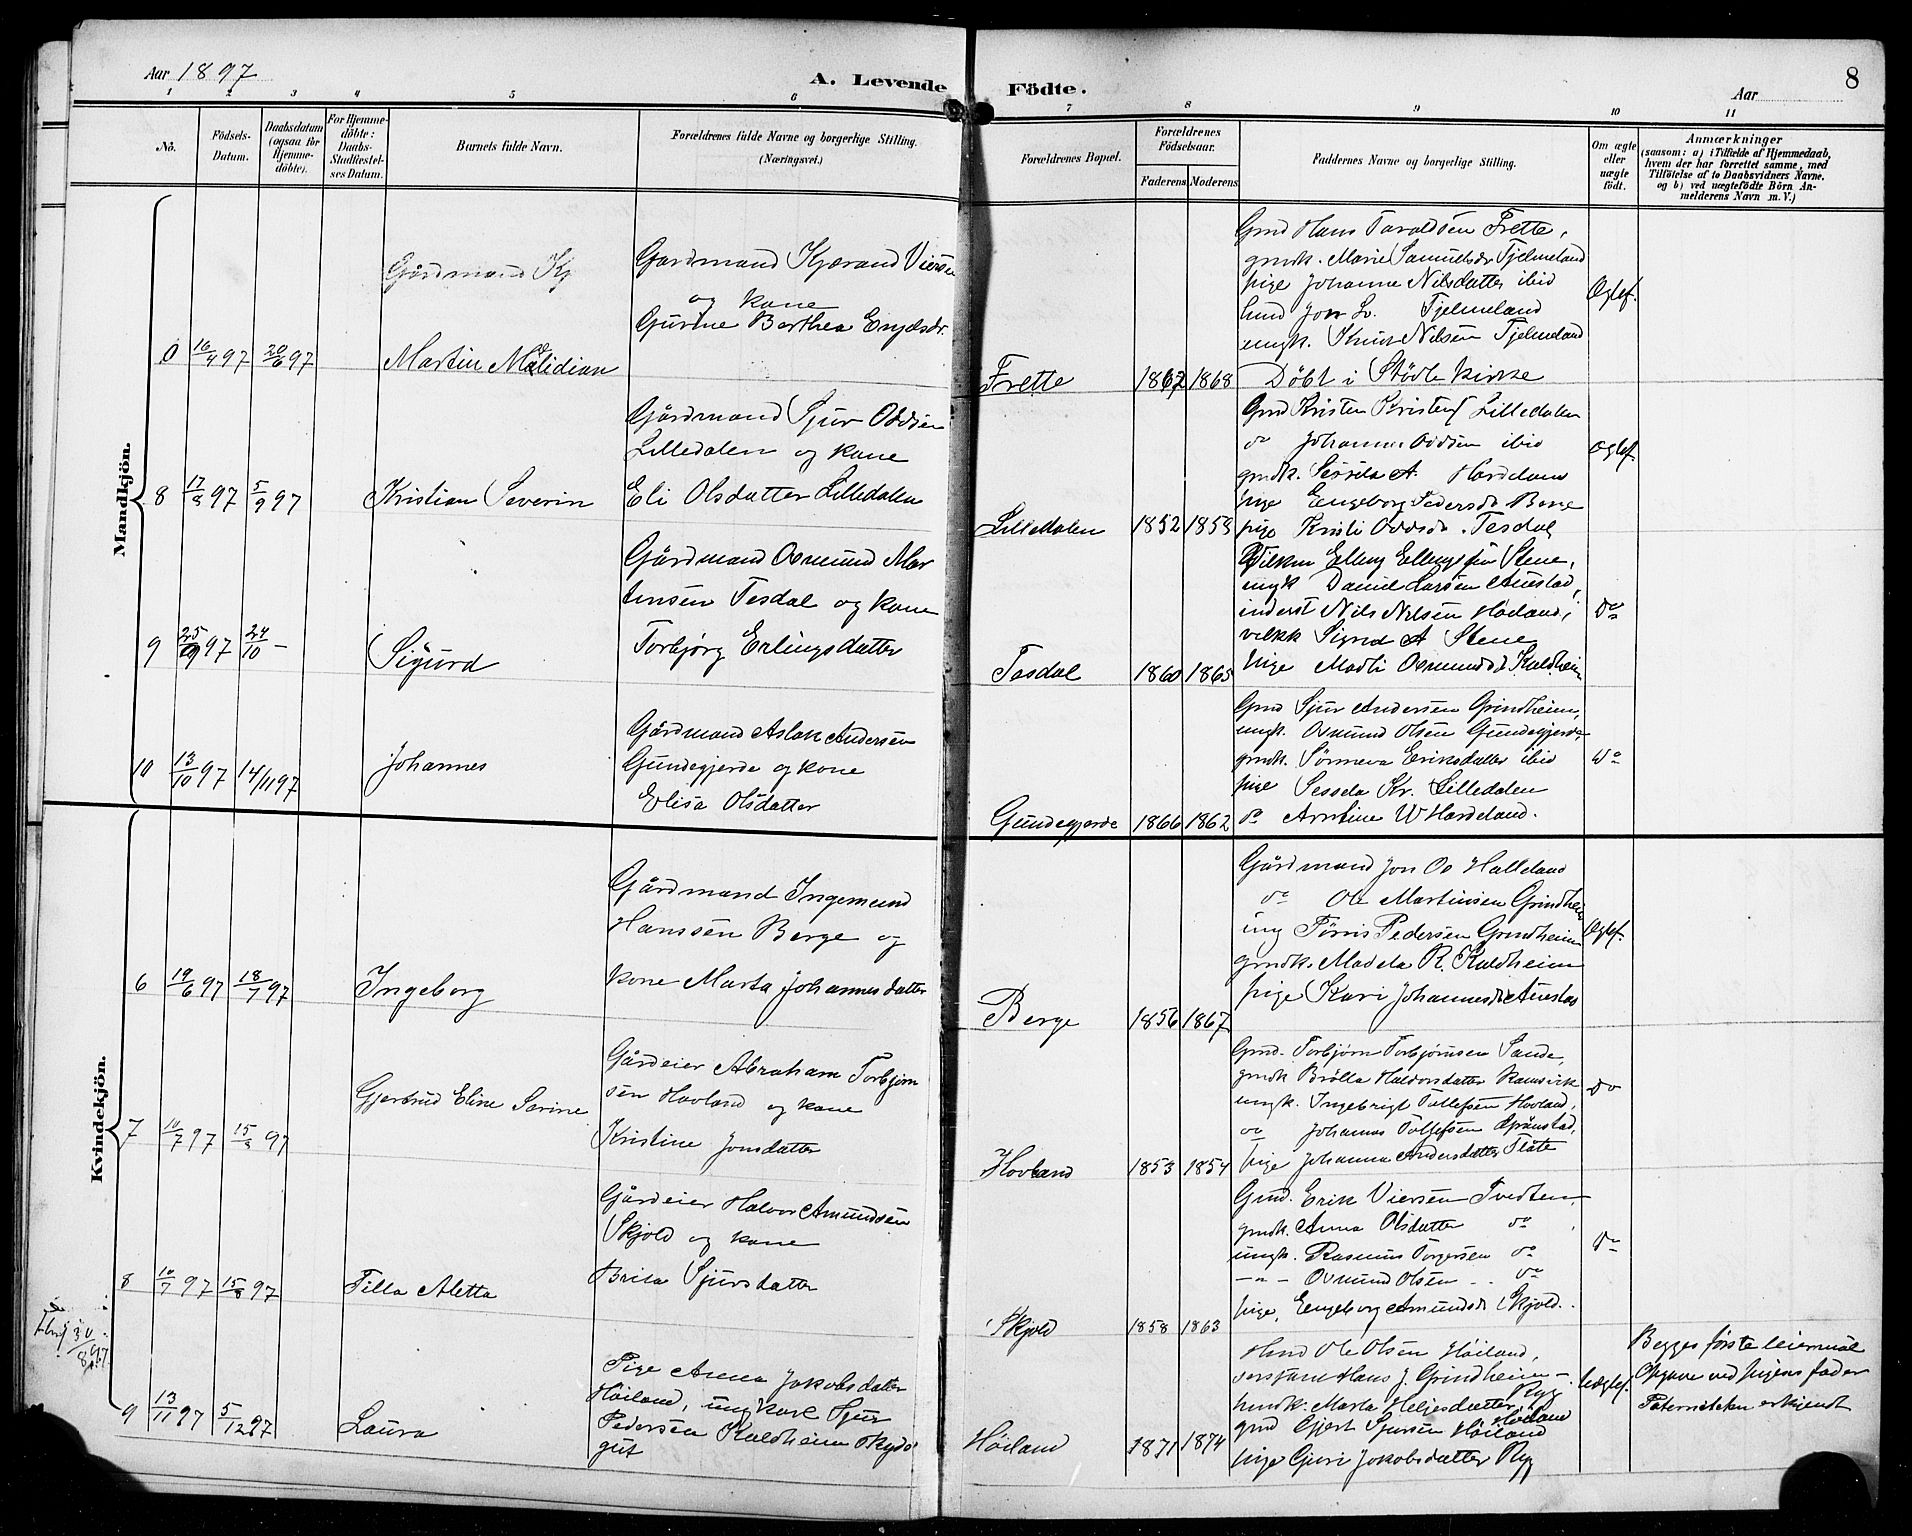 Aar 1897
A. Levende Födte.
Aar
8
1 2 3 4 5 6 7 8 9 10 11
No.
Födsels-Datum.
Daabsdatum (ogsaa for Hjemmedöbte).
For Hjemmedöbte: Daabs-Stadfæstelses Datum.
Barnets fulde Navn.
Forældrenes fulde Navne og borgerlige Stilling.
(Næringsvei.)
Forældrenes Bopæl.
Forældrenes Födselsaar.
Faderens. Moderens.
Faddernes Navne og borgerlige Stilling.
Om ægte eller uægte födt.
Anmærkninger
(saasom: a) i Tilfælde af Hjemmedaab,
hvem der har forrettet samme, med
Tilföielse af to Daabsvidners Navne.
og b) ved uægtefödte Börn An-
melderens Navn m. V.)
Mandkjön.
Gårdmand Kj
Gardmand Kjærand Viersen
og kone
Gurine Berthea Eriksdr.
0 16/4 97 20/6 97 Martin Malidian
Frette 1867 1868
Gmd Hans Taraldsen Frette,
gmdk. Marie Samuelsdr Tjelmeland
pige Johanne Nilsdatter ibid
Tjelmeland
ungk. Knut Nilsen Tjelmeland
Døbt i Stødle kirke
Ægtef.
8 17/8 97 5/9 97 Kristian Severin
Gårdmand Sjur Oddsen
Lilledalen og kone
Eli Olsdatter Lilledalen
Lilledalen 1852 1858
Gmd Kristen Lilledalen
do Johannes Oddsen ibid
gmdk. Sessela A. Hardeland
pige Engeborg Pedersd Berge
pige Kristi Oddsd. Tesdal
Ægtef.
9 25/9 97 24/10 – Sigurd
Gårdmand Osmund Mar
tinsen Tesdal og kone
Torbjørg Erlingsdatter
Tesdal 1860 1865
Elling Ellingsen Stene,
ungk Daniel Larsen Austad,
inderst Nils Nilsen Høiland,
Signed A Stene
pige Madli Osmundsd Kaldheim
do
10 13/10 97 14/11 97 Johannes
Gårdmand Aslak Andersen
Gundegjerde og kone
Elisa Olsdatter
Gundegjerde 1866 1862
Gmd Sjur Andersen Grindheim,
ungk. Osmund Olsen Gundegjerde,
gmdk. Sønneva Eriksdatter ibid
pige Sessela Kr. Lilledalen
do W Hardeland.
do
Kvindekjön.
6 19/6 97 18/7 97 Ingeborg
Gårdmand Ingemund
Hanssen Berge og
kone Marta Johannesdatter
Berge 1856 1867
Gårdmand Jon Halleland
do Ole Martinsen Grindheim
ung Tørris Pedersen Grindheim
gmdk. Madela R. Kaldheim
pige Kari Johannesd Austad
Ægtef.
7 10/7 97 15/8 97 Gjertrud Eline Serine
Gårdeier Abraham Torbjørn
sen Hovland og kone
Kristine Jonsdatter
Hovland 1853 1854
Gmd. Torbjørn Torbjørnsen Sande,
gmdk Haldorsdatter Ramsvik
ungk. Ingebrigt Tollefsen Hovland,
do Johannes Tollefsen
pige Johanna Andersdatter Flåte
do
8 10/7 97 15/8 97 Tilla Aletta
Gårdeier Halvor Amundsen
Skjold og kone
Brita Sjursdatter
Skjold 1858 1863
Gmd. Erik Viersen Tvedten
gmdk. Anna Olsdatter do
ungk. Rasmus Torgersen do
– " – Osmund Olsen do
pige, Engeborg Amundsd Skjold.
do
30/8 97.
9 13/11 97 5/12 97 Laura
Pige Anna Jakobsdatter
Høiland, ungkarl Sjur
Pedersen Kaldheim skyds
gut
Høiland 1871 1874
Hmd Ole Olsen Høiland,
Hans J. Grindheim
hmdk. Marta Heljesdatter Ryg
gmd Gjert Sjursen Høiland
pige Guri Jakobsdatter Ryg
Uægtef.
Begges første leiermaal
Opgave ved pigens fader
Paterniteten erkjendt